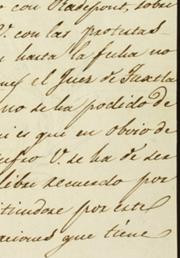 con Radepont, sobre
V. con las protestas
hasta la fecha no
el Juez de Tuxtla
no se ha podido de
es que en obvio de
V. se ha de ser
libre recuerdo por
por este
que tiene